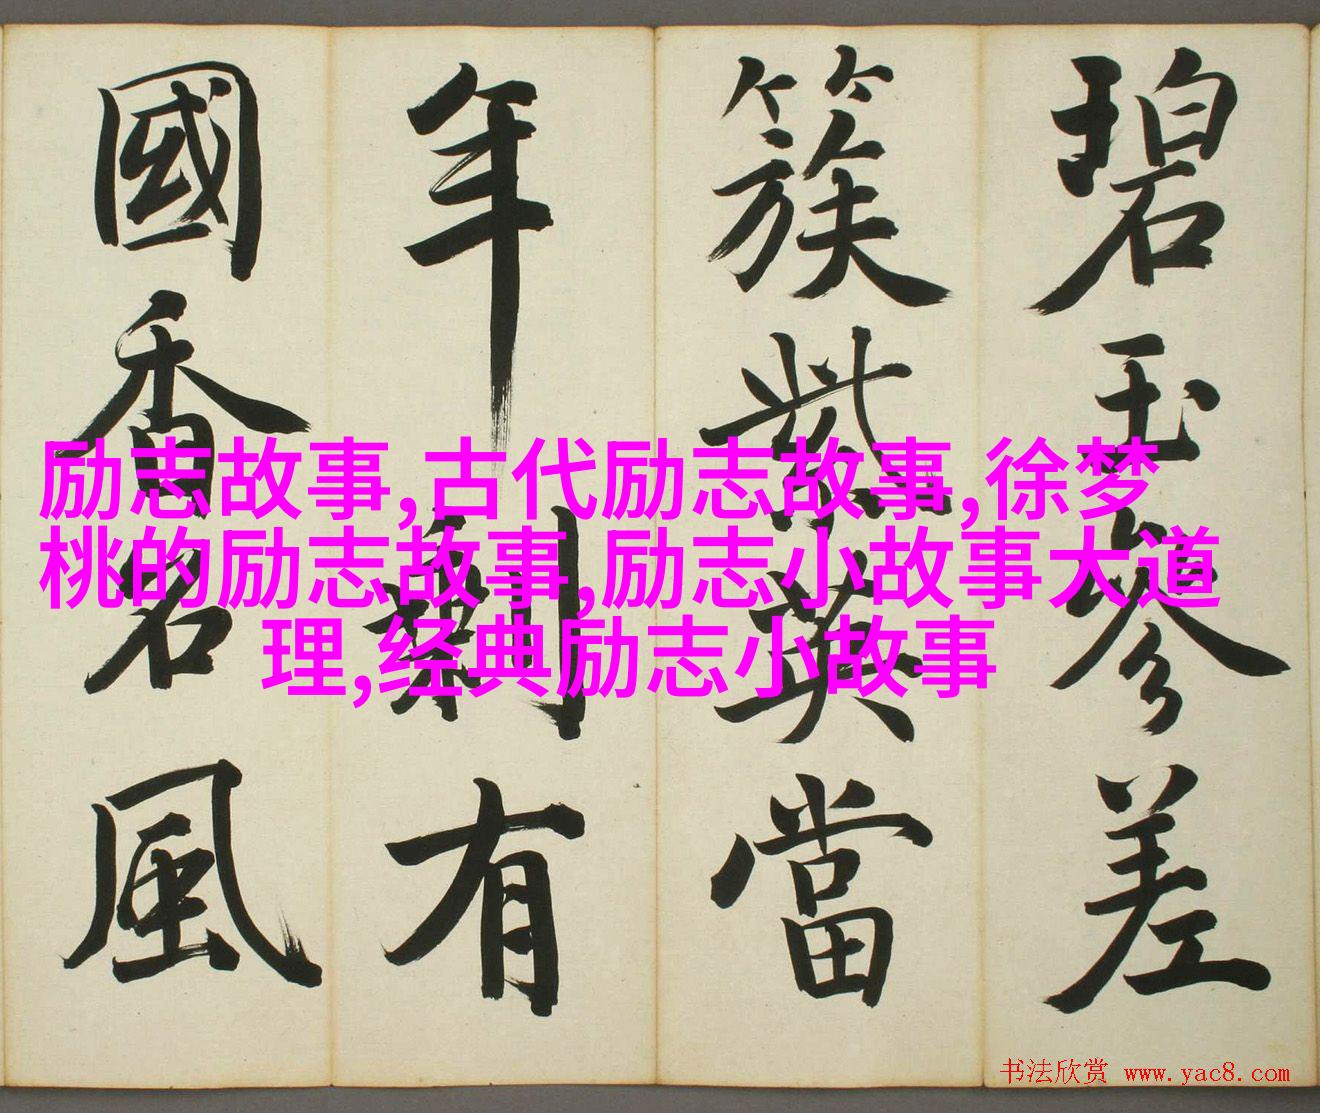 碧玉參差
簇紫英當
年剩有
國香名風
励志故事,古代励志故事,徐梦
桃的励志故事,励志小故事大道
理,经典励志小故事
书法欣赏 www.yac8.com